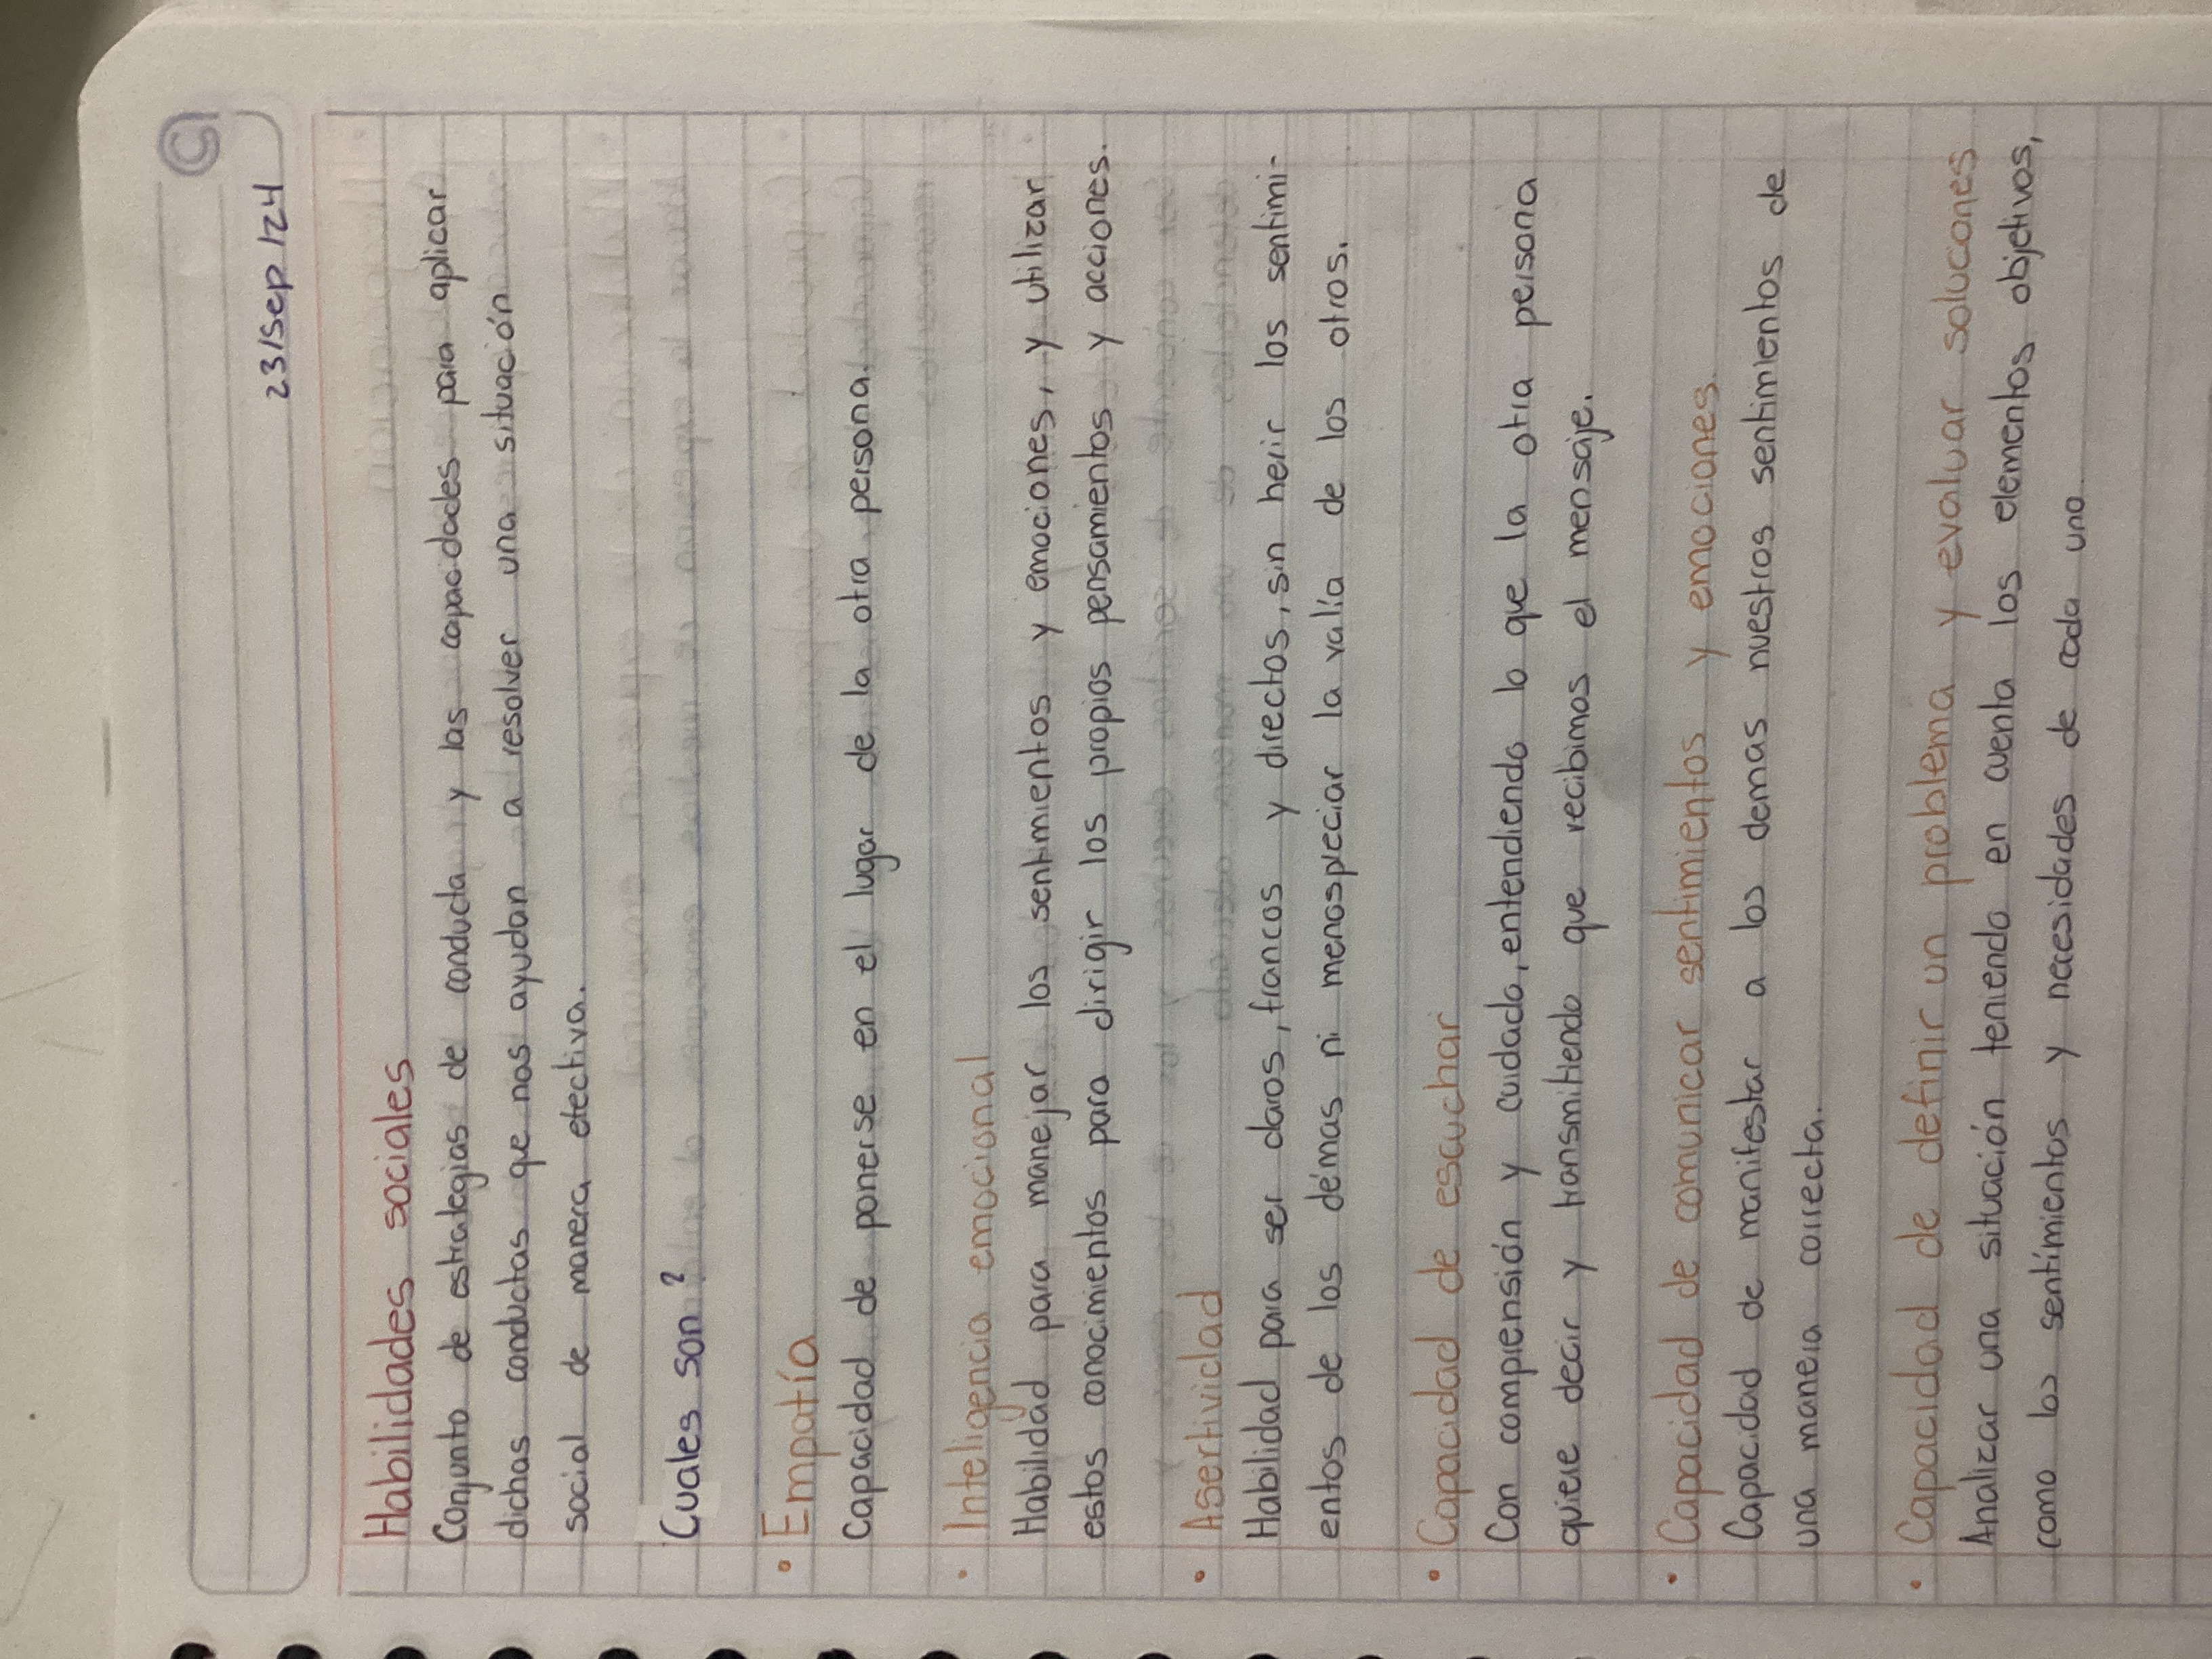 23/Sep/24
Habilidades sociales
Conjunto de estrategias de conducta y las capacidades para aplicar
dichas conductas que nos ayudan a resolver una situación
social de manera efectiva.
Cuales son?
• Empatía
Capacidad de ponerse en el lugar de la otra persona.
• Inteligencia emocional
Habilidad para manejar los sentimientos y emociones, y utilizar
estos conocimientos para dirigir los propios pensamientos y acciones.
• Asertividad
Habilidad para ser claros, francos y directos, sin herir los sentimi-
entos de los démas ni menospreciar la valía de los otros.
• Capacidad de escuchar
Con comprensión y cuidado, entendiendo lo que la otra persona
quiere decir y transmitiendo que recibimos el mensaje.
• Capacidad de comunicar sentimientos y emociones.
Capacidad de manifestar a los demas nuestros sentimientos de
una manera correcta.
• Capacidad de definir un problema y evaluar soluciones
Analizar una situación teniendo en cuenta los elementos objetivos,
como los sentimientos y necesidades de cada uno